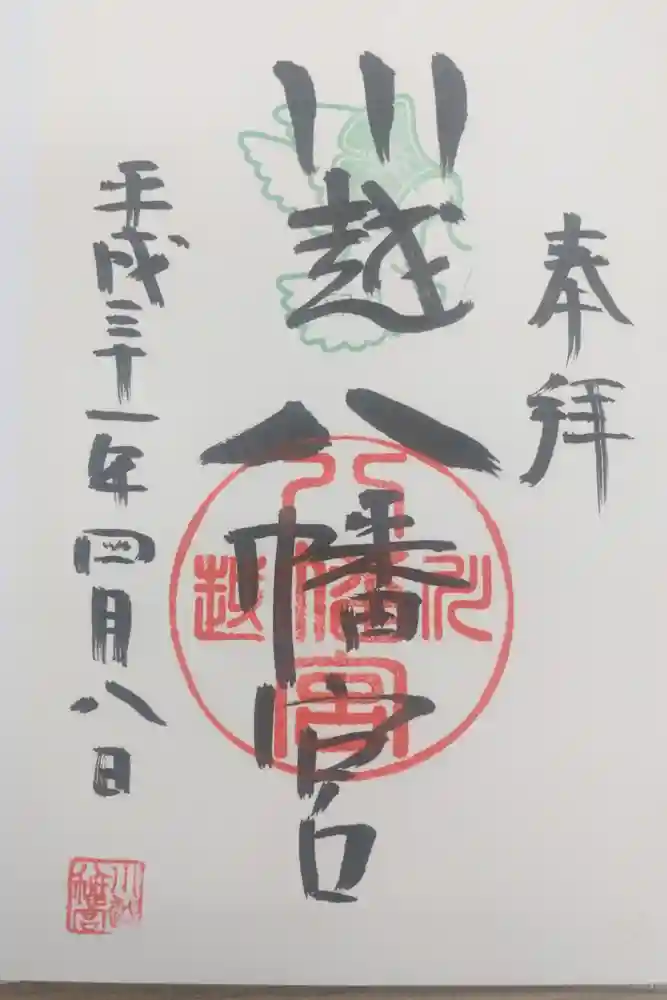 奉拝
川越八幡宮
八幡宮
川越
平成三十一年四月八日